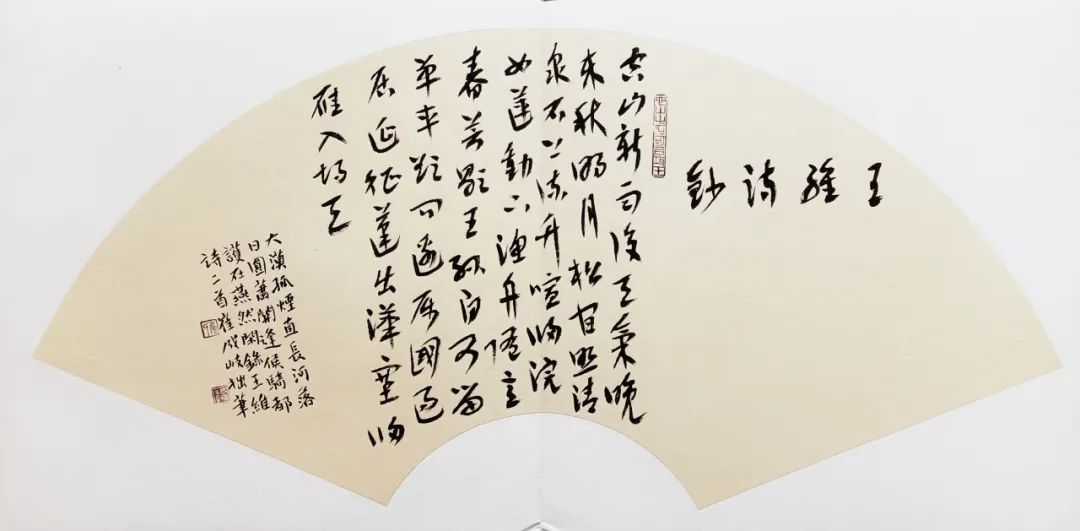 王維詩鈔
空山新雨後天氣晚
来秋明月松間照清
泉石上流竹喧歸浣
女蓮動下漁舟隨意
春芳歇王孫自可留
單車欲問邊屬國過
居延征蓬出漢塞歸
雁入胡天
大漠孤煙直長河落
日圓蕭關逢候騎都
護在燕然閑錄王維
詩二首崔成岐拙筆